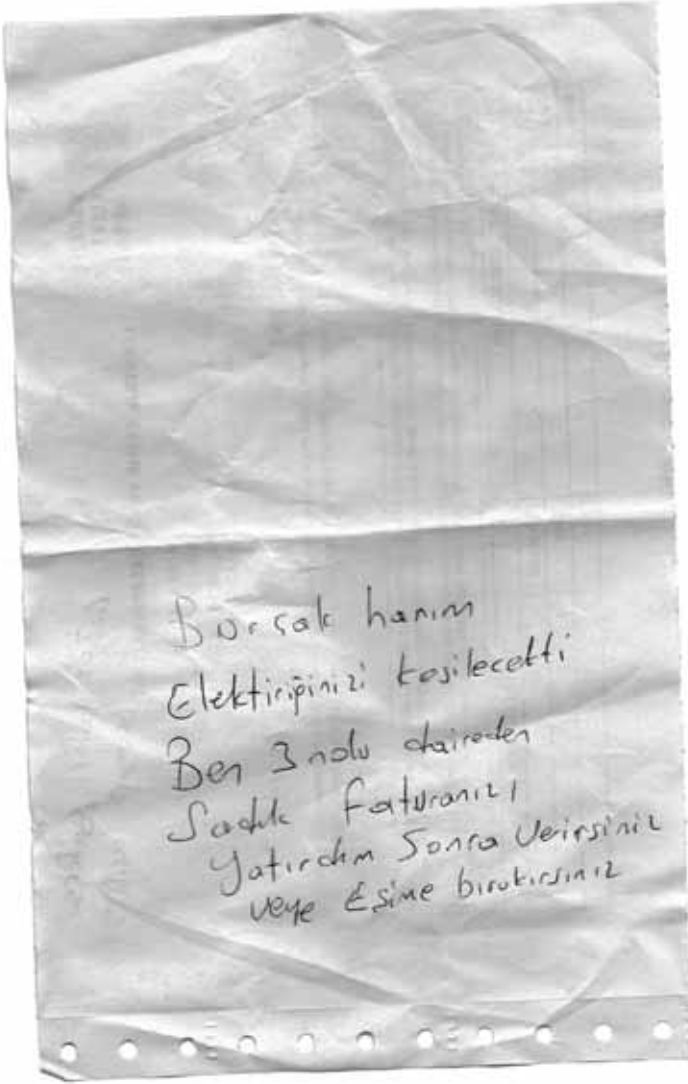 Burçak hanım
Elektiriğinizi kesilecekti
Ben 3 nolu daireden
Sadık faturanızı
yatırdım Sonra Verirsiniz
veye Eşime bırakırsınız